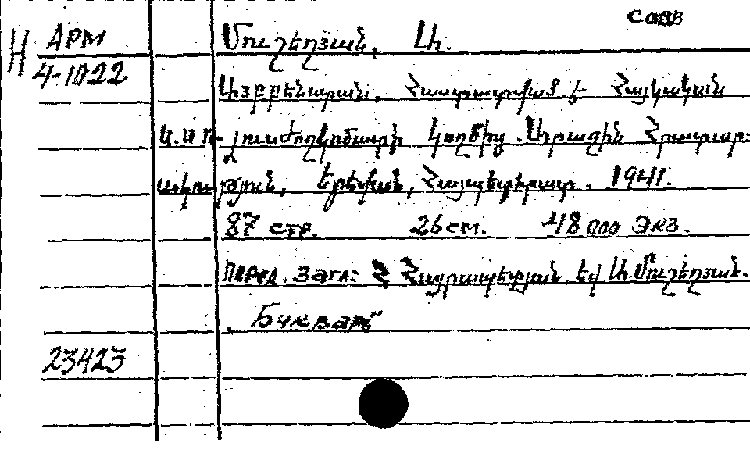 совв
Н АРМ
4-1022
Մուշեղյան, Ա.
Այբբենարան. Հաստատված է Հայկական
Ս.Ս.Ռ. լուսժողկոմատի կողմից. Առաջին Հրատար-
ակություն, Երևան, Հայպետհրատ. 1941.
87 стр. 26 см. 48000 экз.
Перед. загл: Հ. Հայրապետյան եվ Ա. Մուշեղյան.
„Букварь"
23423